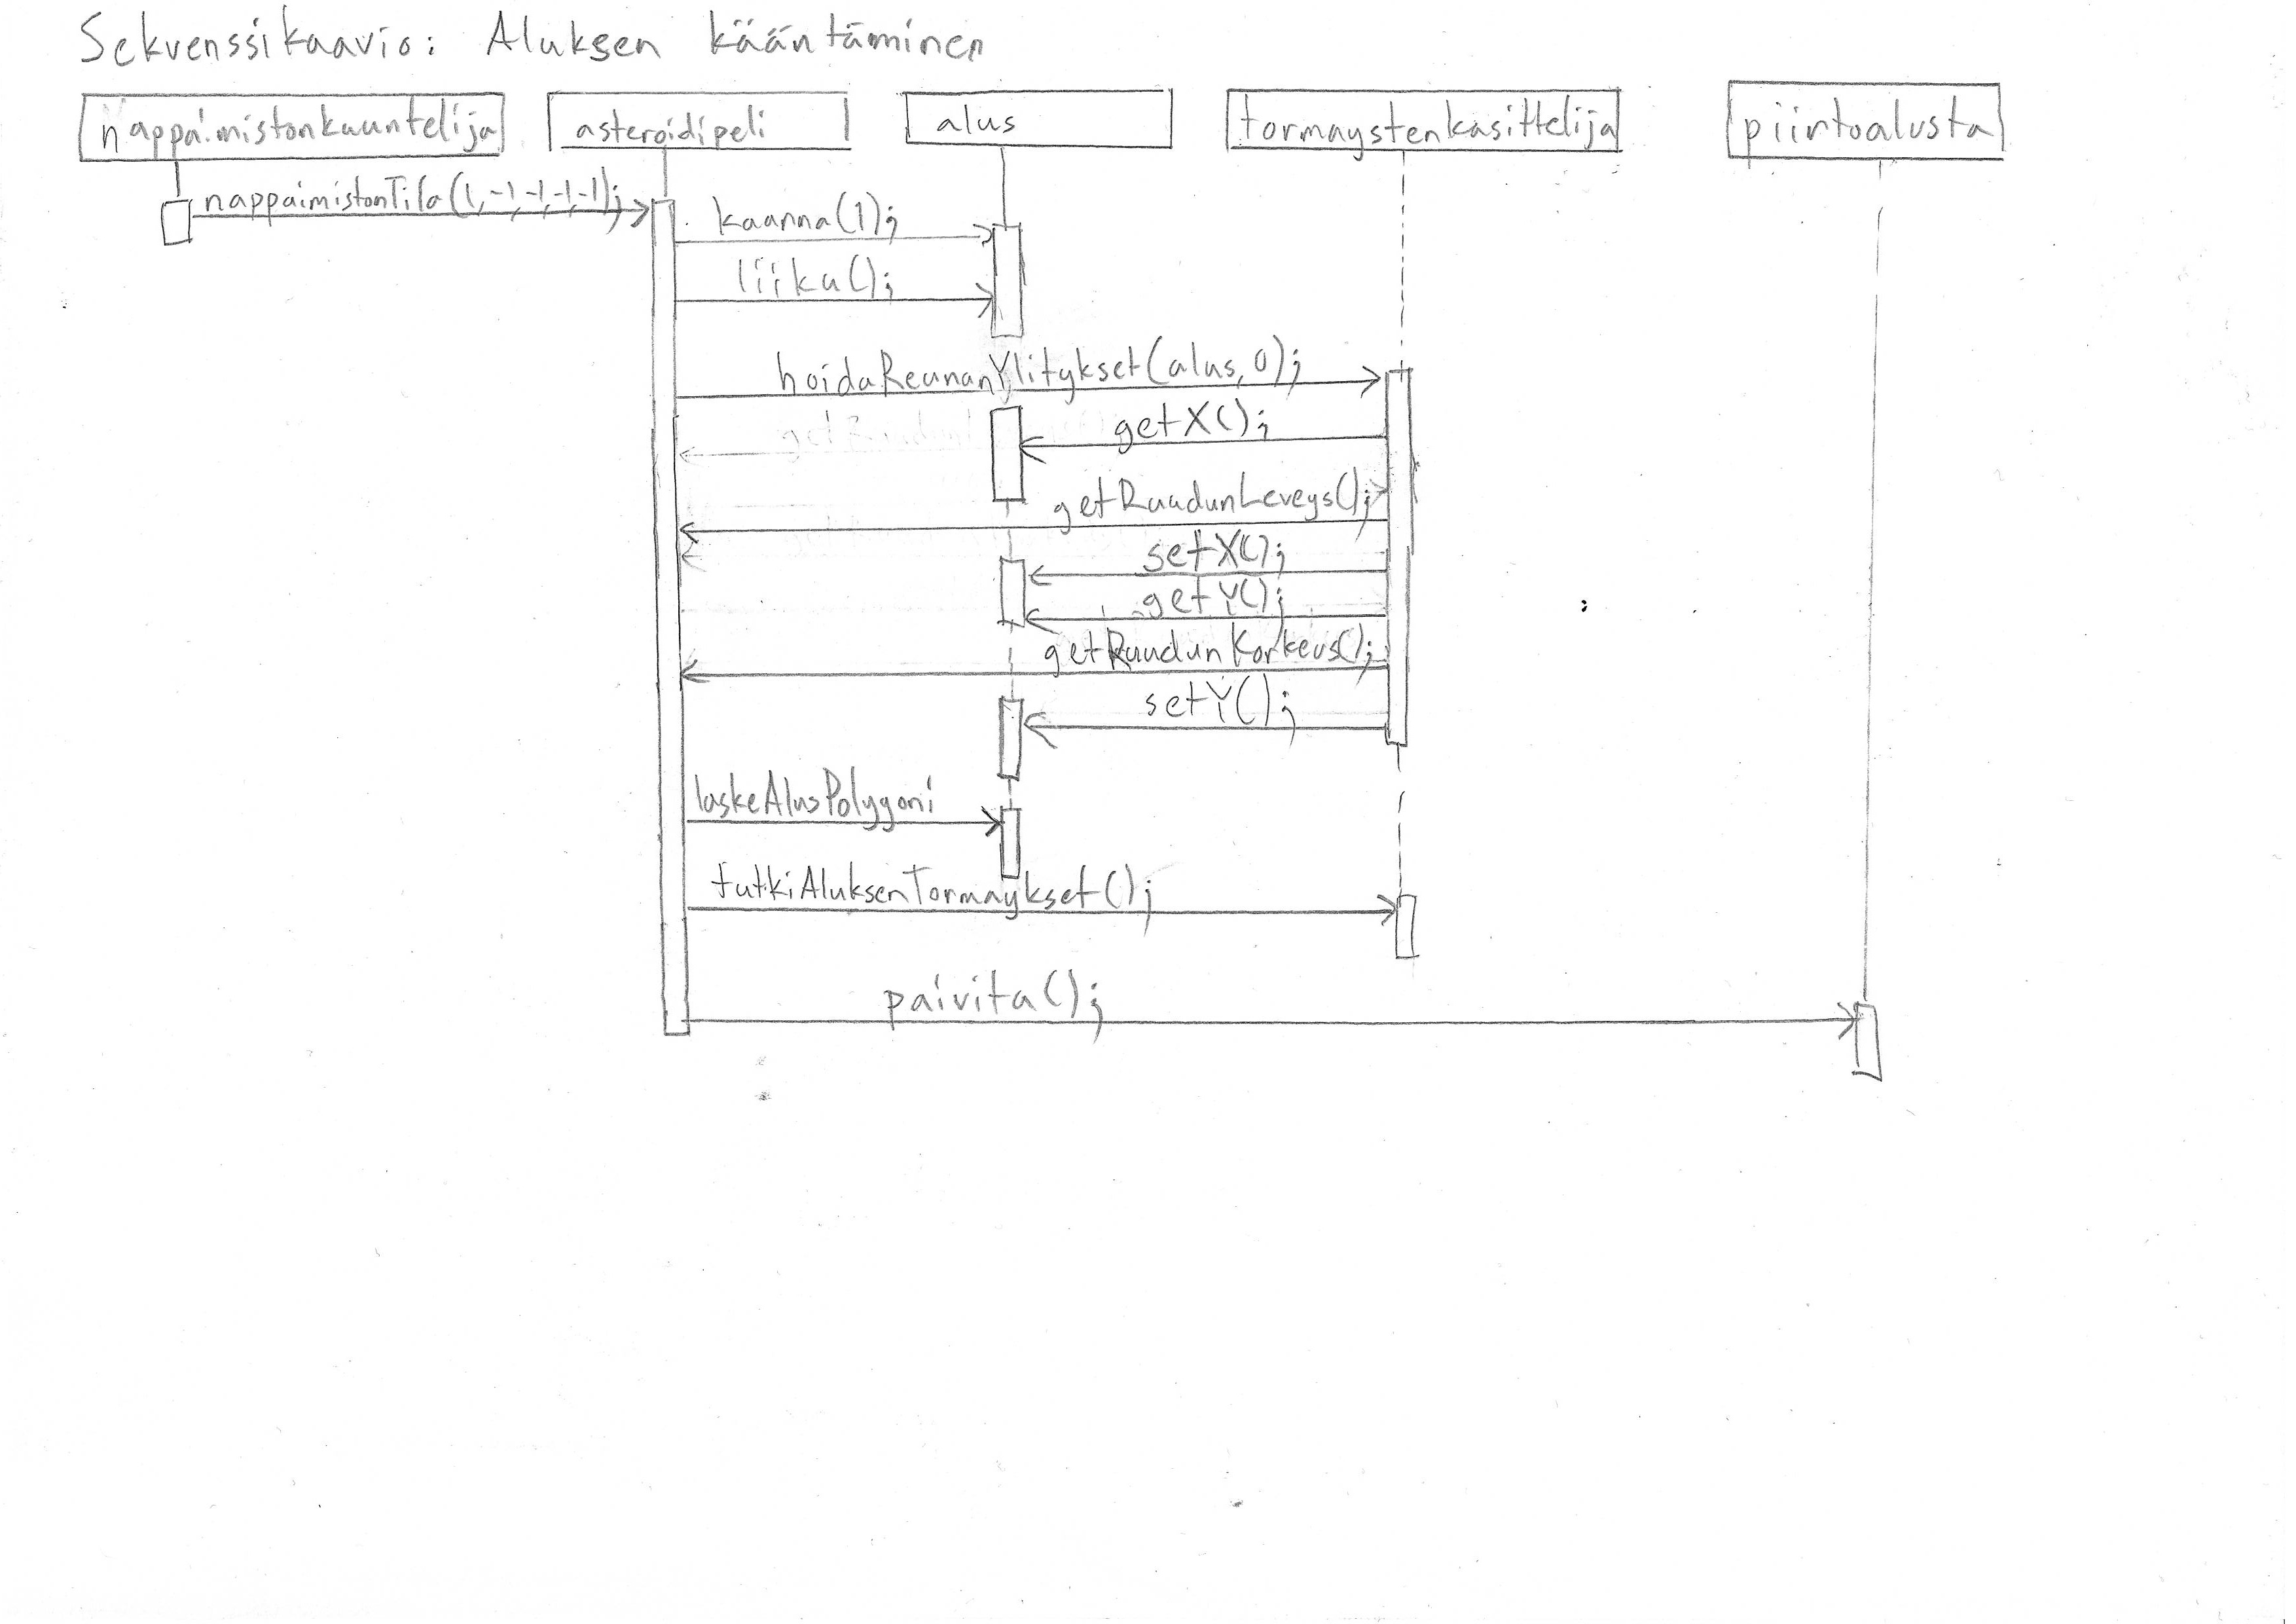 Sekvenssikaavio: Aluksen kääntäminen
nappaimistonkuuntelija
asteroidipeli
alus
tormaystenkasittelija
piirtoalusta
nappaimistonTila(1,-1,-1,-1,-1);
kaanna(1);
liiku();
hoidaReunanYlitykset(alus,0);
getX();
getRuudunLeveys();
setX();
getY();
getRuudunKorkeus();
setY();
laskeAlusPolygoni
tutkiAluksenTormaykset();
paivita();